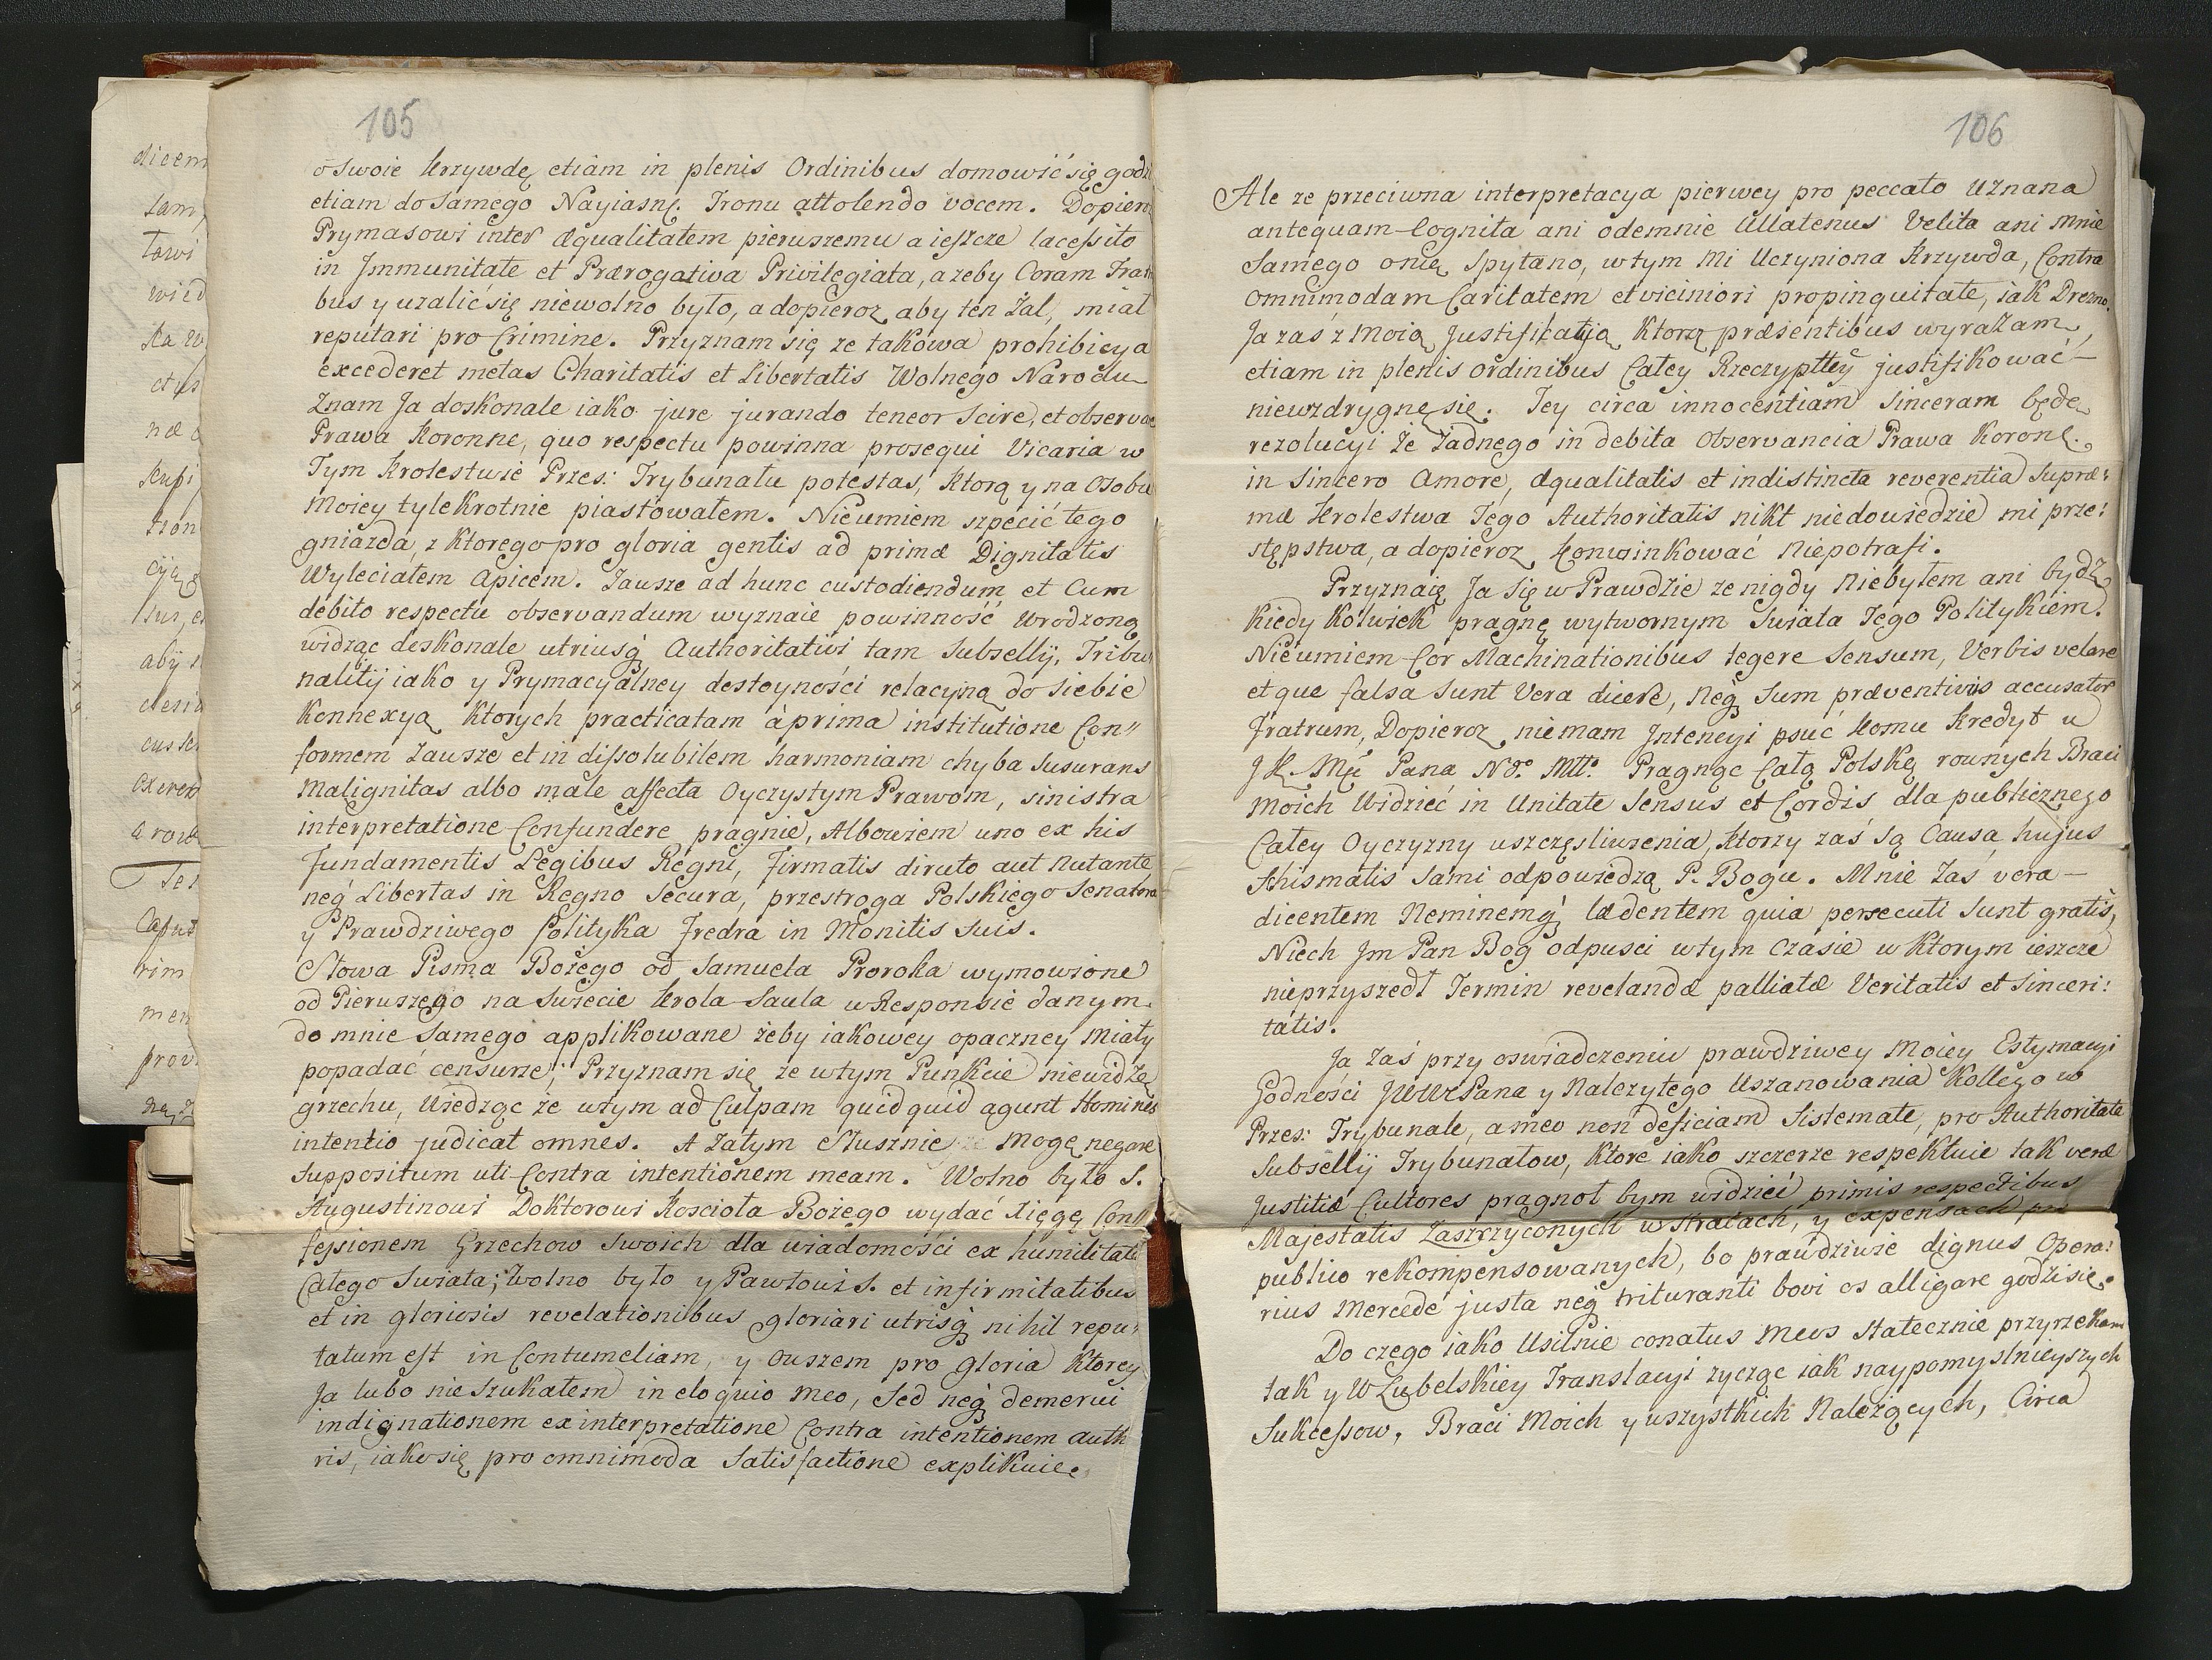 105
o swoie krzywdę etiam in plenis Ordinibus domowić się godzi
etiam do samego Nayiasn. Tronu attolendo vocem. Dopieroz
Prymasowi inter æqualitatem pierwszemu a ieszcze lacessito
in Jmmunitate et Prærogativa Privilegiata, azeby Coram Frat
bus y uzalić się niewolno było, a dopieroz aby ten Zal, miał
reputari pro Crimine. Przyznam się ze takowa prohibicya
excederet metas Charitatis et Libertatis Wolnego Narodu
Znam Ja doskonale iako jure jurando teneor Scire, et observar
Prawa Koronne, quo respectu powinna prosequi Vicaria w
Tym Krolestwie Przes: Trybunału potestas, ktorą y na Osobie
Moiey tylekrotnie piastowałem. Nieumiem szpecić tego
gniazda, z ktorego pro gloria gentis ad primæ Dignitatis
Wyleciałem Apicem. Zausze ad hunc custodiendum et Cum
debito respectu observandum wyznaie powinność Wrodzoną
widząc doskonale utriusq Authoritatiwi tam Subsellij, Tribu
nalitij iako y Prymacyalney dostoyności relacyiną do siebie
Konnexyą ktorych practicatam à prima institutione Con"
formem Zausze et in dissolubilem harmoniam chyba Susurans
Malignitas albo male affecta Oyczystym Prawom, sinistra
interpretatione Confundere pragnie, Albowiem uno ex his
Fundamentis Legibus Regni, firmatis diruto aut Nutante
neq Libertas in Regno Secura, przestroga Polskiego Senatora
y Prawdziwego Polityka Fredra in Monitis Suis.
Słowa Pisma Bożego od Samuela Proroka wymowione
od Pierwszego na Swiecie Krola Saula w Responsie danym
do mnie Samego applikowane żeby iakowey opaczney Miały
popadać censurze; Przyznam się ze w tym Punkcie niewidzę
grzechu, Wiedząc że w tym ad Culpam quidquid agunt Homines
intentio judicat omnes. A Zatym Słusznie mogę negare
Suppositum uti Contra intentionem meam. Wolno było S.
Augustinowi Doktorowi Kosciola Bożego wydać Xięgę Con"
fessionem Grzechow Swoich dla wiadomości ex humilitate
Całego Swiata; Wolno było y Pawłowi S. et infirmitatibus
et in gloriosis revelationibus gloriari utrisq nihil repu:
tatum est in Contumeliam, y Owszem pro gloria Ktorey
Ja lubo nie Szukałem in eloquio meo, Sed neq demerui
indignationem ex interpretatione Contra intentionem auth
ris, iako się pro omnimoda Satisfactione explikuie.
106
Ale ze przeciwna interpretacya pierwey pro peccato Uznana
antequam Cognita ani odemnie Ullatenus Velita ani mnie
Samego onię Spytano, w tym Mi Uczyniona Krzywda, Contra
omnimodam Caritatem et viciniori propinquitate, iak Drezno.
Ja zaś z Moią Justificatją Ktorą præsentibus wyrażam,
etiam in plenis ordinibus Całey Rzeczypltey justifikować
niewzdrygnę się. Tey circa innocentiam Sinceram będę
rezolucyi że Żadnego in debita Observancia Prawa Koron.
in Sincero Amore, æqualitatis et indistincta reverentia Supræ:
mæ Krolestwa Tego Authoritatis nikt niedowiedzie mi prze:
stępstwa, a dopieroz konwinkować niepotrafi.
Przyznaię Ja Się w Prawdzie ze nigdy niebyłem ani bydź
kiedy kolwiek pragnę wytwornym Swiata Tego Politykiem.
Nieumiem Cor Machinationibus tegere Sensum, Verbis velare
et que falsa Sunt Vera dicere, neq Sum præventivus accusator
Fratrum, Dopieroz niemam Jntencyi psuć komu kredyt u
J K Mći Pana N° Mtt° Pragnąc Całą Polskę rownych Braci
Moich Widzieć in Unitate Sensus et Cordis dla publicznego
Całey Oyczyzny uszczęsliwienia, ktorzy zaś są Causa hujus
Schismatis Sami odpowiedzą P. Bogu. Mnie zaś vera
dicentem Neminemq lædentem quia persecuti Sunt gratis,
Niech Jm Pan Bog odpusci w tym czasie w ktorym ieszcze
nieprzyszedł Termin revelandæ palliatæ Veritatis et Sinceri:
tatis.
Ja zaś przy oswiadczeniu prawdziwey Moiey Estymacyi
Godności JWWPana y Nalezytego Uszanowania Kollego w
Przes: Trybunale, a meo non deficiam Sistemate, pro Authoritate
Subsellij Trybunałow, ktore iako szczerze respektuie tak veræ
Justitiæ Cultores pragnoł bym widzieć primis respectibus
Majestatis Zaszczyconych w Stratach, y expensach pro
publico rekompensowanych, bo prawdziwie dignus Opera:
rius Mercede justa neq trituranti bovi os alligare godzi się.
Do czego iako Usilnie conatus Meos statecznie przyrzekam
tak y W Lubelskiey Translacyi zycząc iak naypomyslnieyszych
Sukcessow, Braci Moich y wszystkich Nalezących, Circa